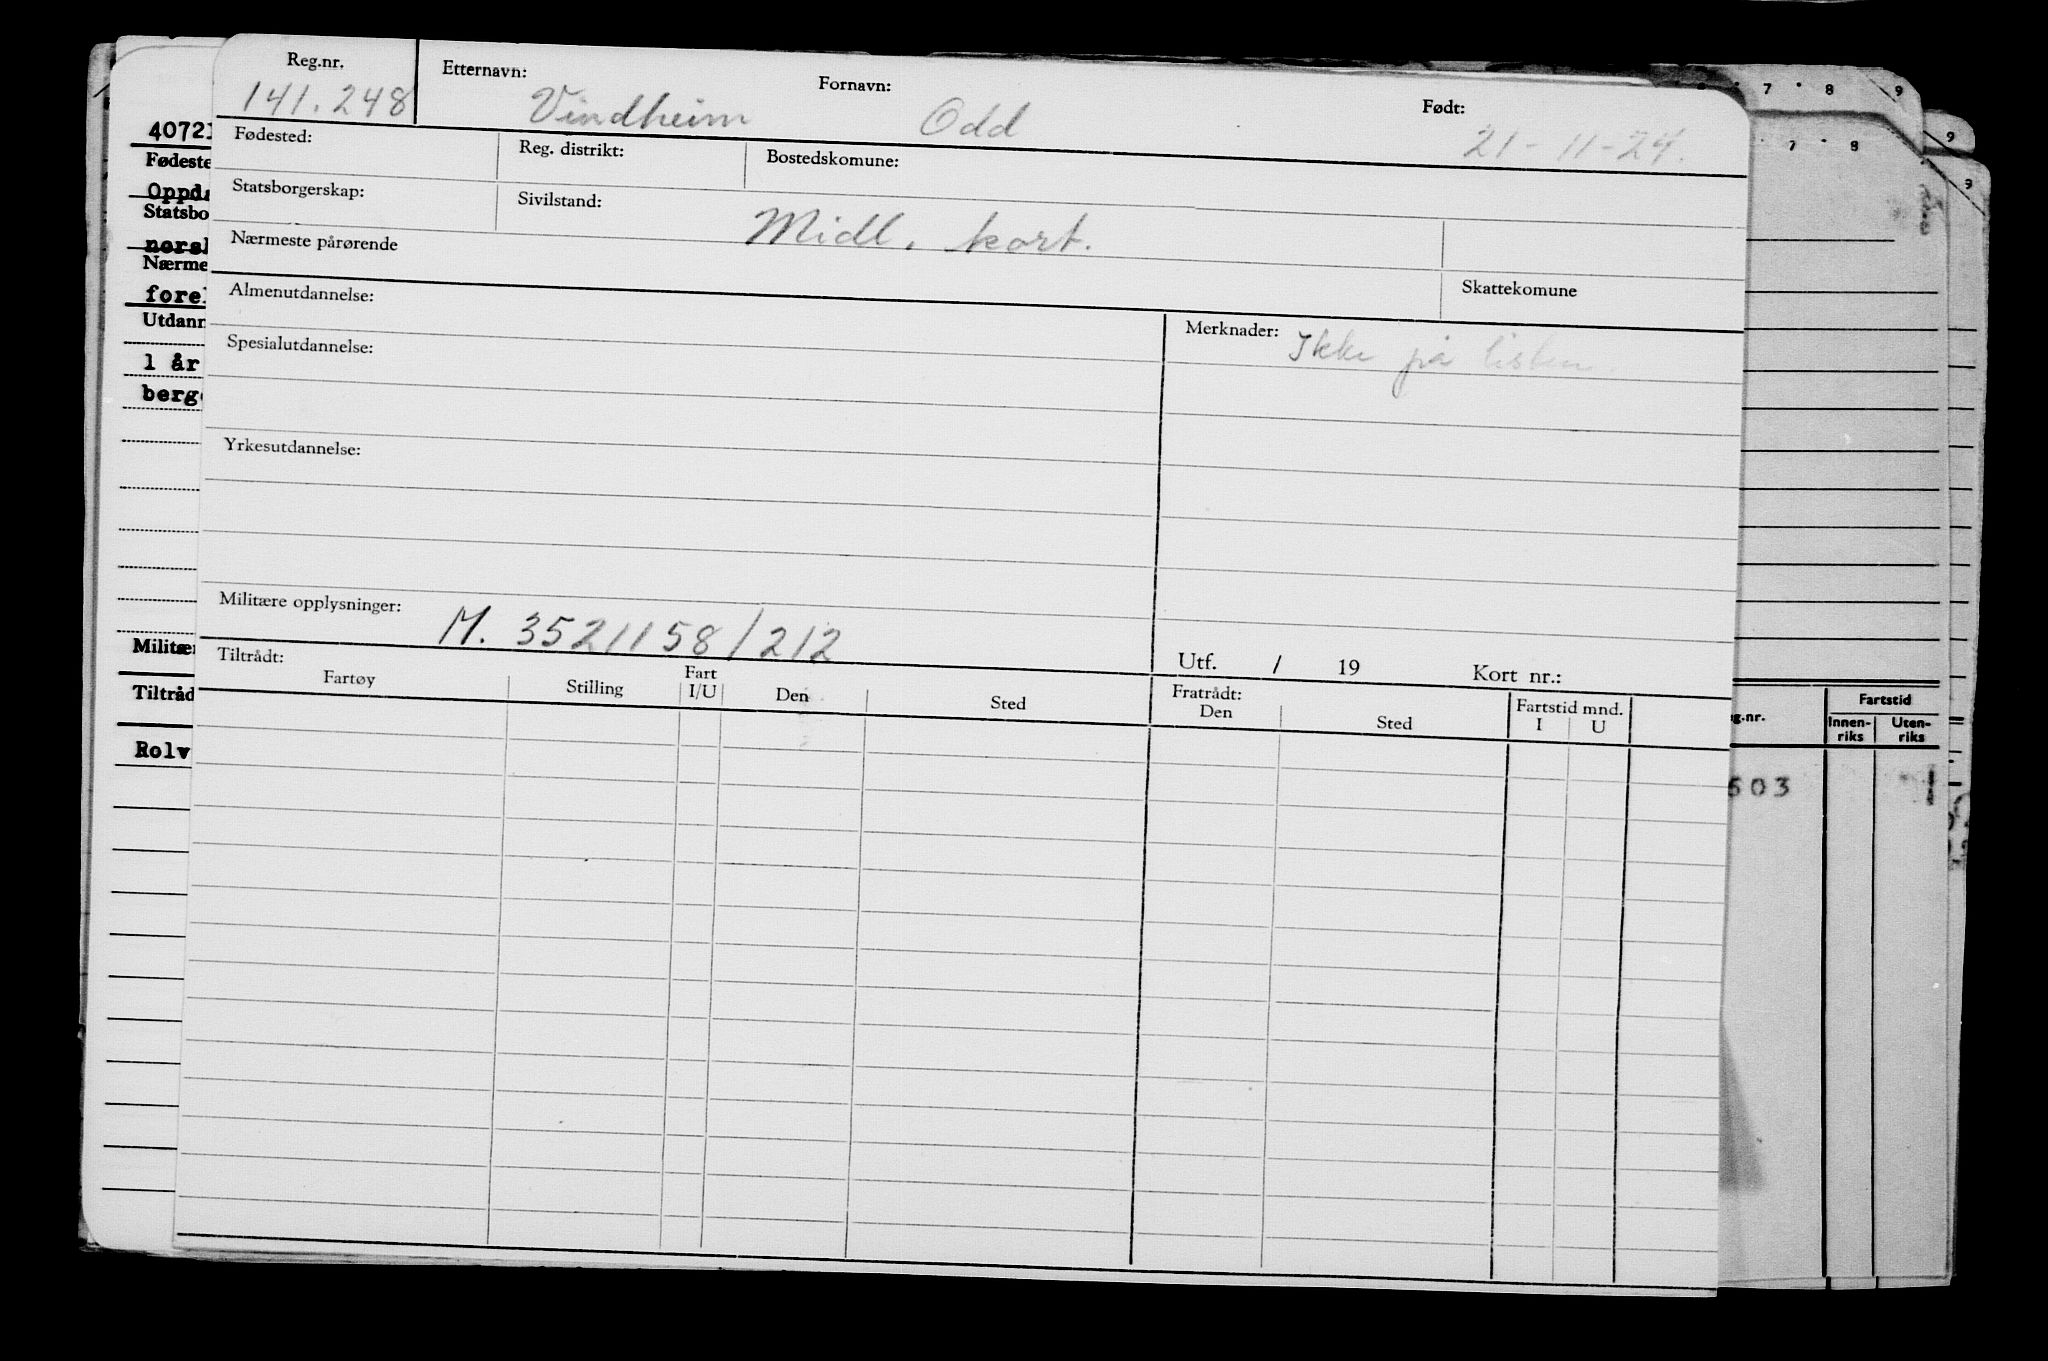 Reg.nr. Etternavn: Fornavn: Født:
141.248 Vindheim Odd 21-11-24.
Fødested: Reg. distrikt: Bostedskomune:
Statsborgerskap: Sivilstand:
Midl. kort.
Nærmeste pårørende
Skattekomune
Almenutdannelse: Merknader: Ikke på listen.
Spesialutdannelse:
Yrkesutdannelse:
Militære opplysninger: M. 3521158/212
Utf. / 19 Kort nr.:
Tiltrådt: Fratrådt:
Fartøy Stilling Fart I/U Den Sted Den Sted Fartstid mnd. I U
40721
Fødeste
Oppd
Statsbo
norsk
Nærme
fore
Utdann
1 år
berg
Militæ
Tiltråd
Rolv
7 8 9
9
7 8
9
g.nr. Fartstid
Innen-riks Uten-riks
603